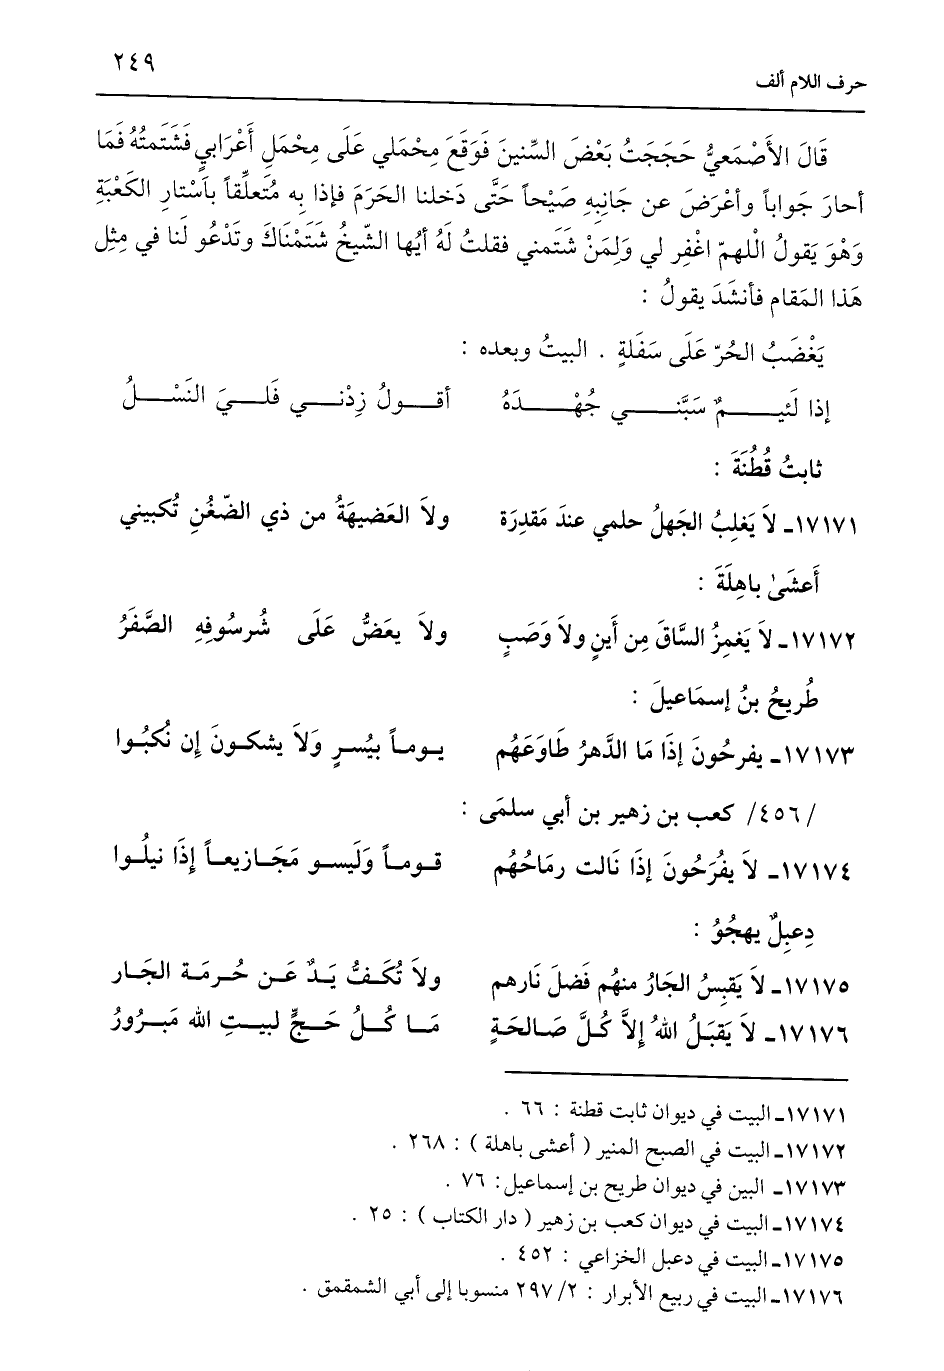 حرف اللام ألف ٢٤٩
قَالَ الأَصْمَعيُّ حَجَجَتُ بَعْضَ السِّنينَ فَوَقَعَ مِحْمَلي عَلَى مِحْمَلِ أَعْرَابي فَشَتَمتُهُ فَمَا
أحارَ جَواباً وأعْرَضَ عن جَانِبِهِ صَيْحاً حَتَّى دَخلنا الحَرَمَ فإذا بِه مُتعلِّقاً بأسْتارِ الكَعْبَةِ
وَهْوَ يَقولُ الْلهمّ اغْفِر لي وَلِمَنْ شَتَمني فقلتُ لَهُ أيُها الشّيخُ شَتَمْنَاكَ وتَدْعُو لَنا في مِثلِ
هَذا المَقام فأنشَدَ يقولُ :
يَغْضَبُ الحُرّ عَلَى سَفَلةٍ . البيتُ وبعده :
إذا لَئيـمٌ سَبَّنـي جُهْـدَهُ أقـولُ زِدْنـي فَلـيَ النَسْـلُ
ثابتُ قُطُنَةَ :
١٧١٧١ـ لاَ يَغلِبُ الجَهلُ حلمي عندَ مَقدِرَة ولاَ العَضيهَةُ من ذي الضّغُنِ تُكبيني
أَعشَىٰ باهِلَةَ :
١٧١٧٢ـ لاَ يَغمِزُ السَّاقَ مِن أَينٍ ولاَ وَصَبٍ ولاَ يعَضُّ عَلَى شُرسُوفِهِ الصَّفَرُ
طُريحُ بنُ إسمَاعيلَ :
١٧١٧٣ـ يفرحُونَ إذَا مَا الدَّهرُ طَاوَعَهُم يـومـاً بيُسـرٍ وَلاَ يشكـونَ إن نُكبُـوا
/٤٥٦/ كعب بن زهير بن أبي سلمَى :
١٧١٧٤ـ لاَ يفُرَحُونَ إذَا نَالت رمَاحُهُم قـومـاً وَلَيسـو مَجَـازيعـاً إِذَا نيلُـوا
دِعبِلٌ يهجُوُ :
١٧١٧٥ـ لاَ يَقبِسُ الجَارُ منهُم فَضلَ نَارهم ولاَ تُكَـفُّ يَـدٌ عَـن حُـرمَـة الجَـار
١٧١٧٦ـ لاَ يَقبَلُ اللهُ إلاَّ كُلَّ صَـالحَـةٍ مَـا كُـلُ حَـجٍّ لبيـتِ الله مَبـرُورُ
١٧١٧١ـ البيت في ديوان ثابت قطنة : ٦٦ .
١٧١٧٢ـ البيت في الصبح المنير ( أعشى باهلة ) : ٢٦٨ .
١٧١٧٣ـ البين في ديوان طريح بن إسماعيل: ٧٦ .
١٧١٧٤ـ البيت في ديوان كعب بن زهير ( دار الكتاب ) : ٢٥ .
١٧١٧٥ـ البيت في دعبل الخزاعي : ٤٥٢ .
١٧١٧٦ـ البيت في ربيع الأبرار : ٢/ ٢٩٧ منسوبا إلى أبي الشمقمق .